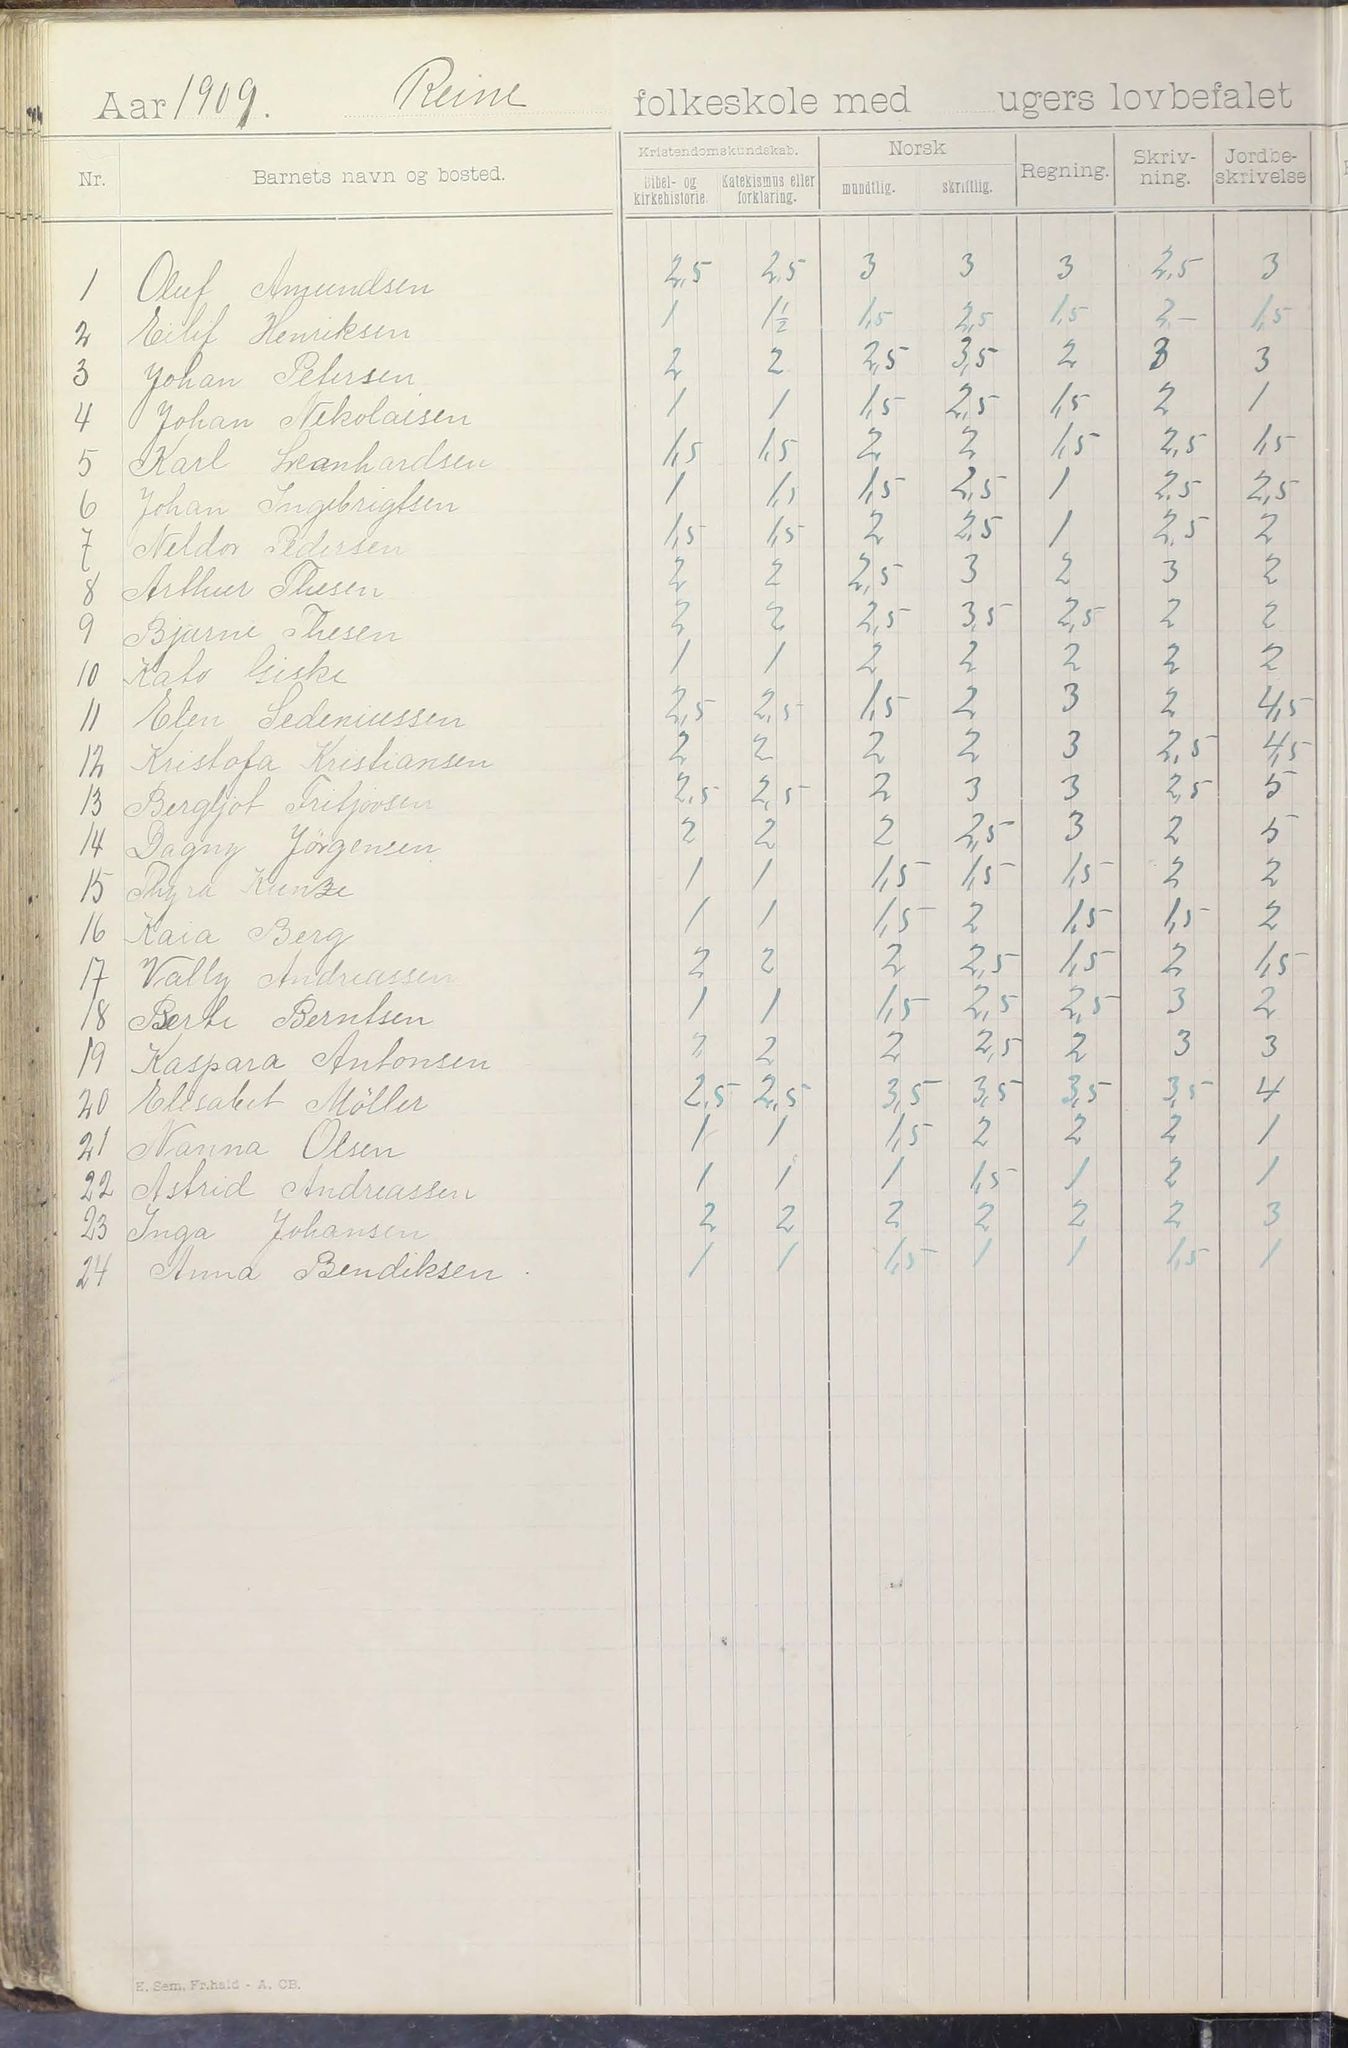 Aar 1909. Reine folkeskole med ugers lovbefalet
Nr. Barnets navn og bosted. Kristendomskundskab. Bibel- og kirkehistorie. Katekismus eller forklaring. Norsk mundtlig. skriftlig. Regning. Skriv-ning. Jordbe-skrivelse
1 Oluf Amundsen 2,5 2,5 3 3 3 2,5 3
2 Eilif Henriksen 1 1½ 1,5 2,5 1,5 2,- 1,5
3 Johan Petersen 2 2 2,5 3,5 2 3 3
4 Johan Nekolaisen 1 1 1,5 2,5 1,5 2 1
5 Karl Leanhardsen 1,5 1,5 2 2 1,5 2,5 1,5
6 Johan Ingebrigtsen 1 1,5 1,5 2,5 1 2,5 2,5
7 Neldor Pedersen 1,5 1,5 2 2,5 1 2,5 2
8 Arthur Thesen 2 2 2,5 3 2 3 2
9 Bjarne Thesen 2 2 2,5 3,5 2,5 2 2
10 Kato Giske 1 1 2 2 2 2 2
11 Elen Sedeniussen 2,5 2,5 1,5 2 3 2 4,5
12 Kristofa Kristiansen 2 2 2 2 3 2,5 4,5
13 Bergljot Fritjovsen 2,5 2,5 2 3 3 2,5 5
14 Dagny Jörgensen 2 2 2 2,5 3 2 5
15 Thyra Kunze 1 1 1,5 1,5 1,5 2 2
16 Kaia Berg 1 1 1,5 2 1,5 1,5 2
17 Vally Andreassen 2 2 2 2,5 1,5 2 1,5
18 Berte Berntsen 1 1 1,5 2,5 2,5 3 2
19 Kaspara Antonsen 2 2 2 2,5 2 3 3
20 Elisabet Möller 2,5 2,5 3,5 3,5 3,5 3,5 4
21 Nanna Olsen 1 1 1,5 2 2 2 1
22 Astrid Andreassen 1 1 1 1,5 1 2 1
23 Inga Johansen 2 2 2 2 2 2 3
24 Anna Bendiksen 1 1 1,5 1 1 1,5 1
E. Sem, Fr.hald - A. CB.